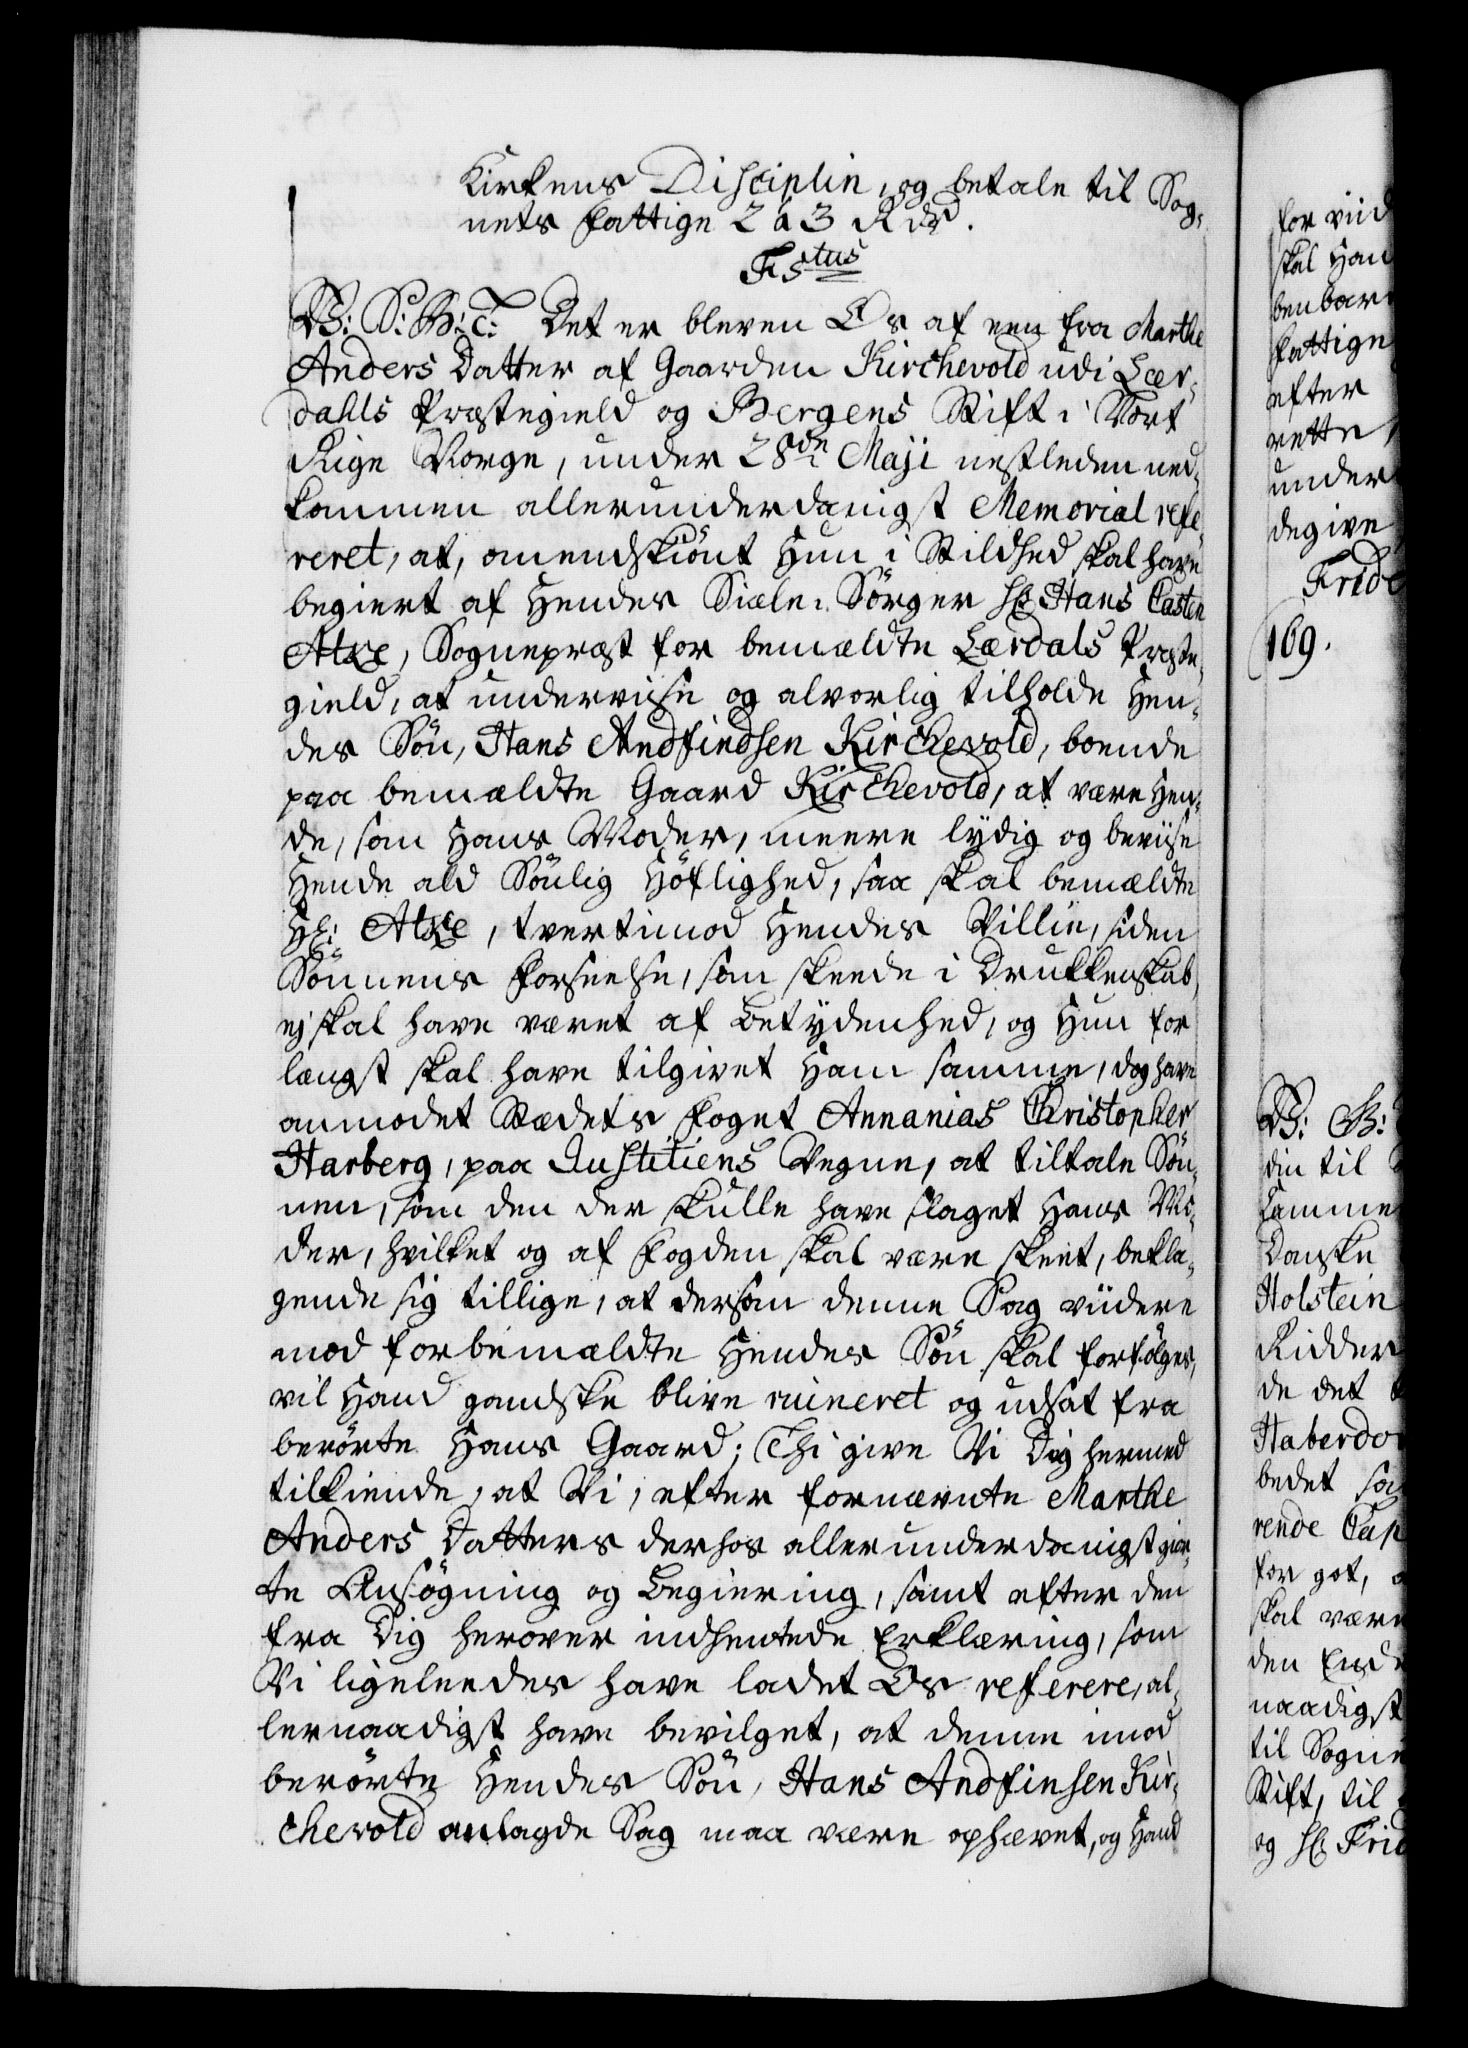 Kirkens Disciplin, og betale til Sog-
nets Fattige 2 à 3 Rdr.
F5tus
V: S: G: T: Det er bleven Os af een fra Marthe
Anders Datter af Gaarden Kirchevold udi Lær-
dahls Præstegield og Bergens Stift i Vort
Rige Norge, under 28de Maji nestleden ned-
kommen allerunderdanigst Memorial refe
reret, at, omendskiönt Hun i Stildhed skal have
begiert af Hendes Siæle-Sörger Hr Hans Casten
Atke, Sognepræst for bemældte Lærdals Præste-
gield, at underviise og alvorlig tilholde Hen-
des Sön, Hans Andfindsen Kirchevold, boende
paa bemældte Gaard Kirchevold, at være Hen-
de, som Hans Moder, meere lydig og beviise
Hende ald Sönlig Höflighed, saa skal bemældte
Hr: Atke, tvertimod Hendes Villie, siden
Sönnens Forseelse, som skeede i Drukkenskab,
ej skal have været af Betydenhed, og Hun for
længst skal have tilgivet Ham samme, dog have
anmodet Stædets Foget Annanias Christopher
Harberg, paa Justitiens Vegne, at tiltale Sön-
nen, som den der skulle have slaget Hans Mo-
der, hvilket og af Fogden skal være skeet, bekla-
gende sig tillige, at dersom denne Sag viidere
mod forbemældte Hendes Sön skal forfölges,
vil Hand gandske blive ruineret og udsat fra
berörte Hans Gaard; Thi give Vi Dig hermed
tilkiende, at Vi, efter fornævnte Marthe
Anders Datters derhos allerunderdanigst gior-
te Ansögning og Begiering, samt efter den
fra Dig herover indhentede Erklæring, som
Vi ligeleedes have ladet Os referere, al-
lernaadigst have bevilget, at denne imod
berörte Hendes Sön, Hans Andfinsen Kir-
chevold anlagde Sag maa være ophævet, og Hand
for viid
skal Han
benbar
Fattige
efter
rette,
under
degive
Fride
169.
V: G:
din til
Camme
Danske
Holstein
Ridder
de det
Haberdo
bedet sa
rende Cap
for got,
skal være
den Ende
naadigst
til Sogne
Stift, til
og Hr Frid